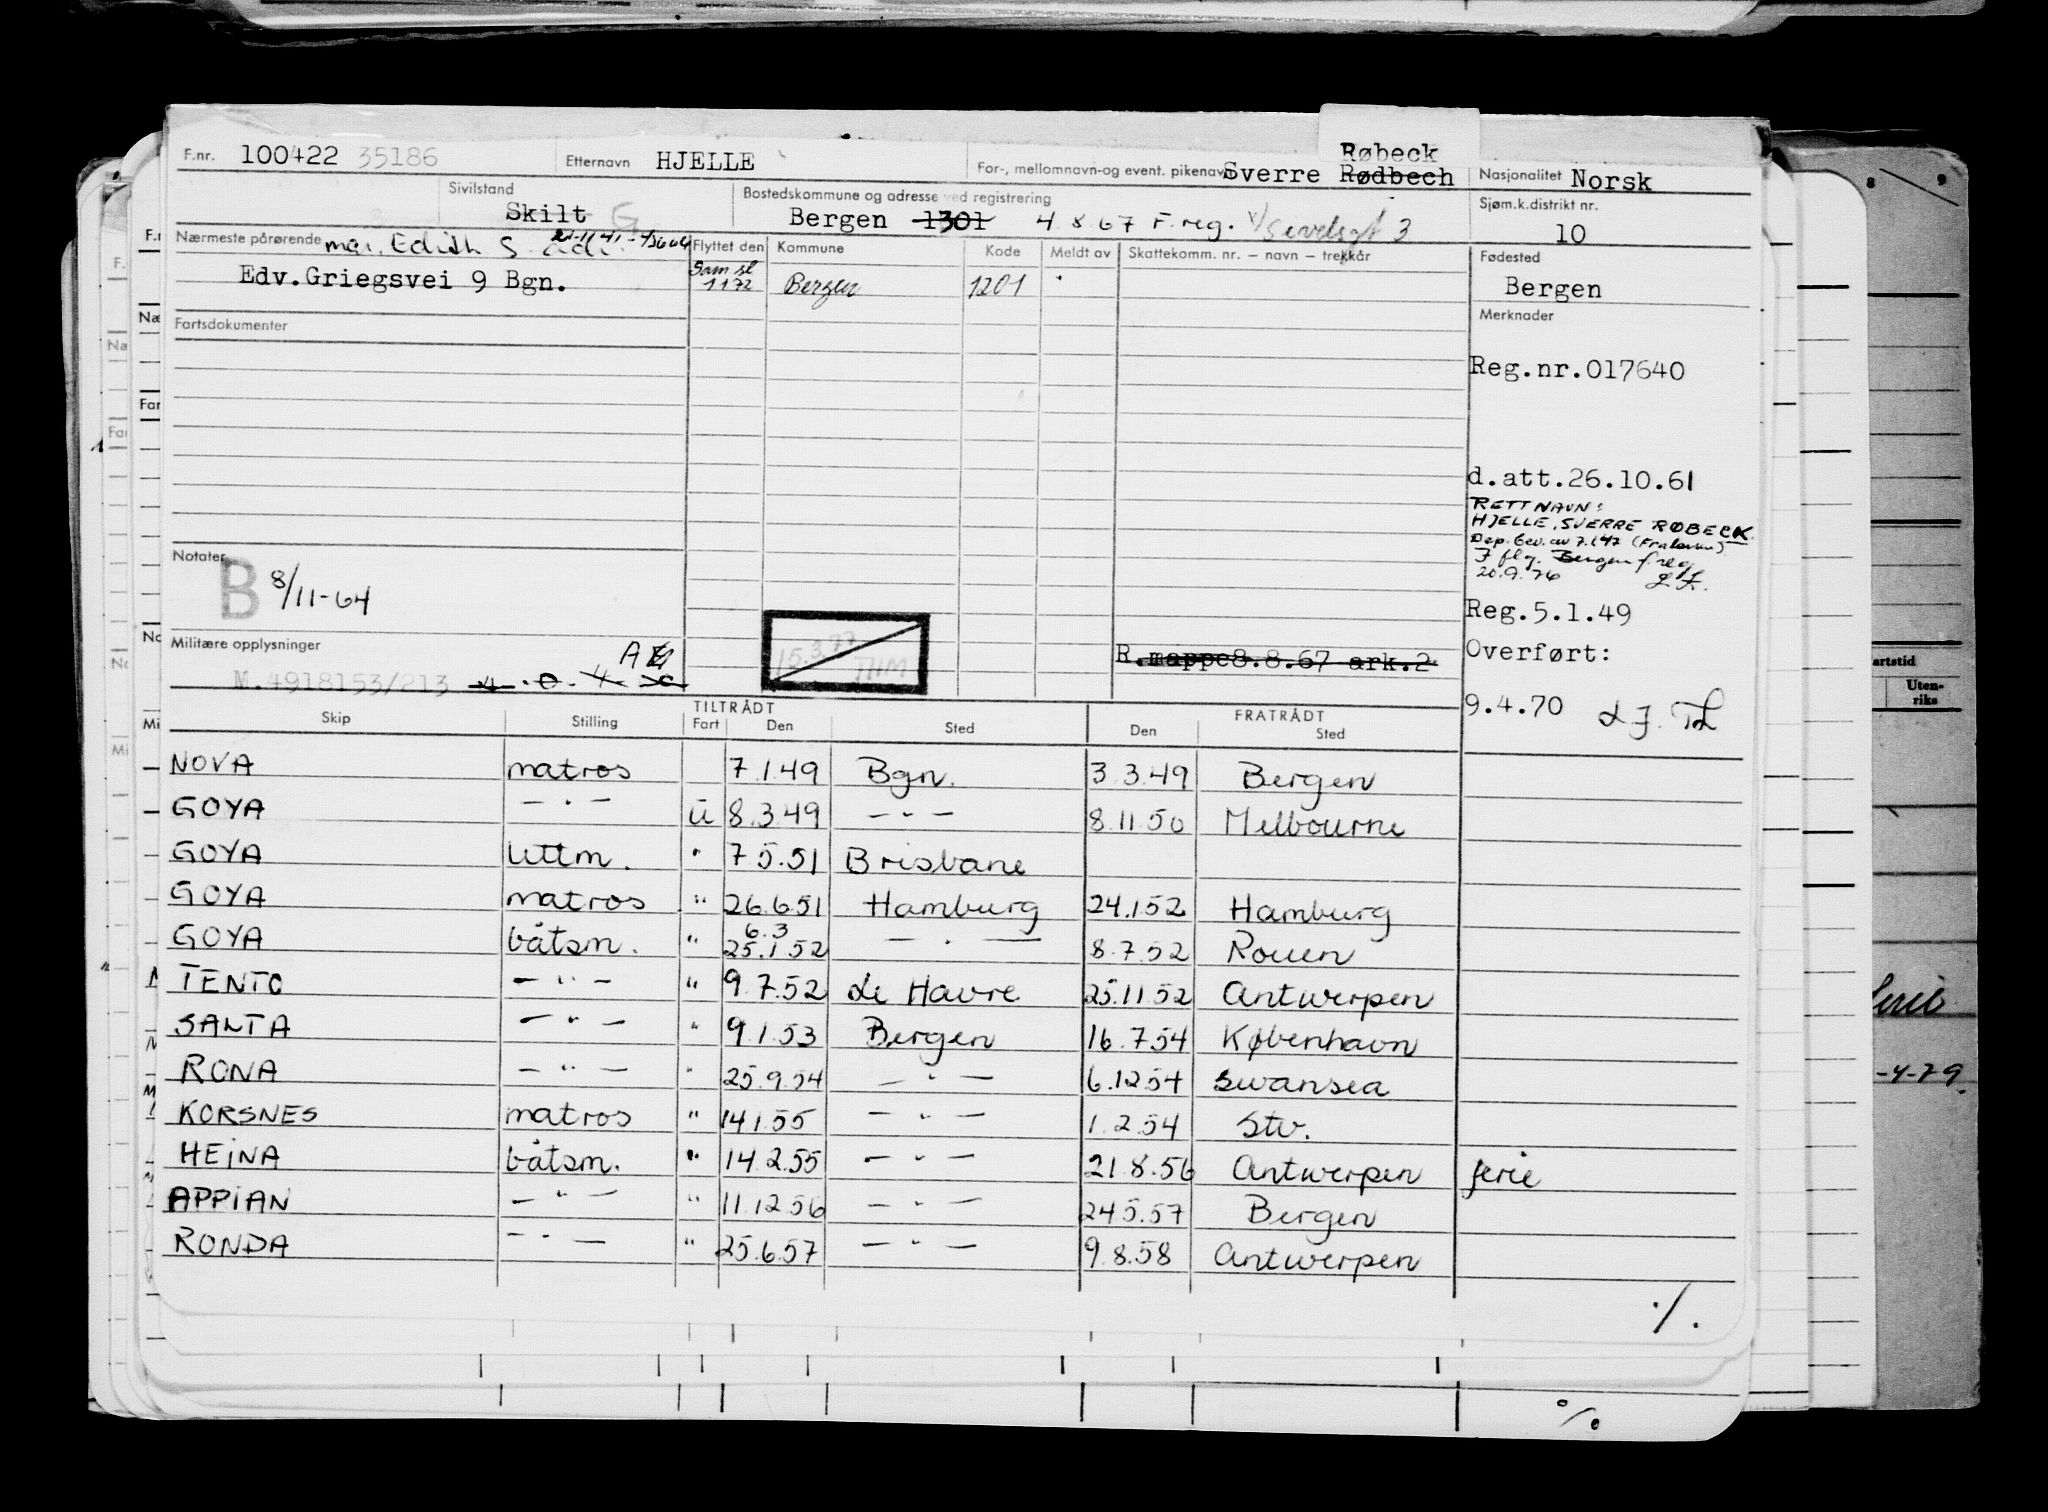 F.nr. 100422 35186 Etternavn HJELLE For-, mellomnavn-og event. pikenavn Sverre Rødbech Røbeck Nasjonalitet Norsk
Sivilstand Skilt G Bostedskommune og adresse ved registrering Bergen 1301 4 8 67 F.reg. Sjøm.k.distrikt nr. 10
Nærmeste pårørende Edith S. Flyttet den Kommune Kode Meldt av Skattekomm. nr. — navn — trekkår Fødested
Edv.Griegsvei 9 Bgn. 1172 Bergen 1201 Bergen
Fartsdokumenter Merknader
Reg.nr.017640
d.att.26.10.61
RETT NAVN:
HJELLE, SVERRE RØBECK
20.9.76
Notater
B 8/11-64
Reg.5.1.49
Militære opplysninger
15.3.77 THM
R.mappe8.8.67 ark.2
Overført:
N.4918153/213
9.4.70
TILTRÅDT FRATRÅDT
Skip Stilling Fart Den Sted Den Sted
NOVA matros 7.1.49 Bgn. 3.3.49 Bergen
GOYA — " — u 8.3.49 — " — 8.11.50 Melbourne
GOYA lettm. " 7 5.51 Brisbane
GOYA matros " 26.6.51 Hamburg 24.1.52 Hamburg
6.3
GOYA båtsm. " 25.1.52 — " — 8.7.52 Rouen
TENTO — " — " 9.7.52 Le Havre 25.11.52 Antwerpen
SALTA — " — " 9.1.53 Bergen 16.7.54 København
RONA — " — " 25.9.54 — " — 6.12.54 Swansea
KORSNES matros " 14.1.55 — " — 1.2.54 Stv.
HEINA båtsm. " 14.2.55 — " — 21.8.56 Antwerpen ferie
APPIAN — " — " 11.12.56 — " — 24.5.57 Bergen
RONDA — " — " 25.6.57 — " — 9.8.58 Antwerpen
./.